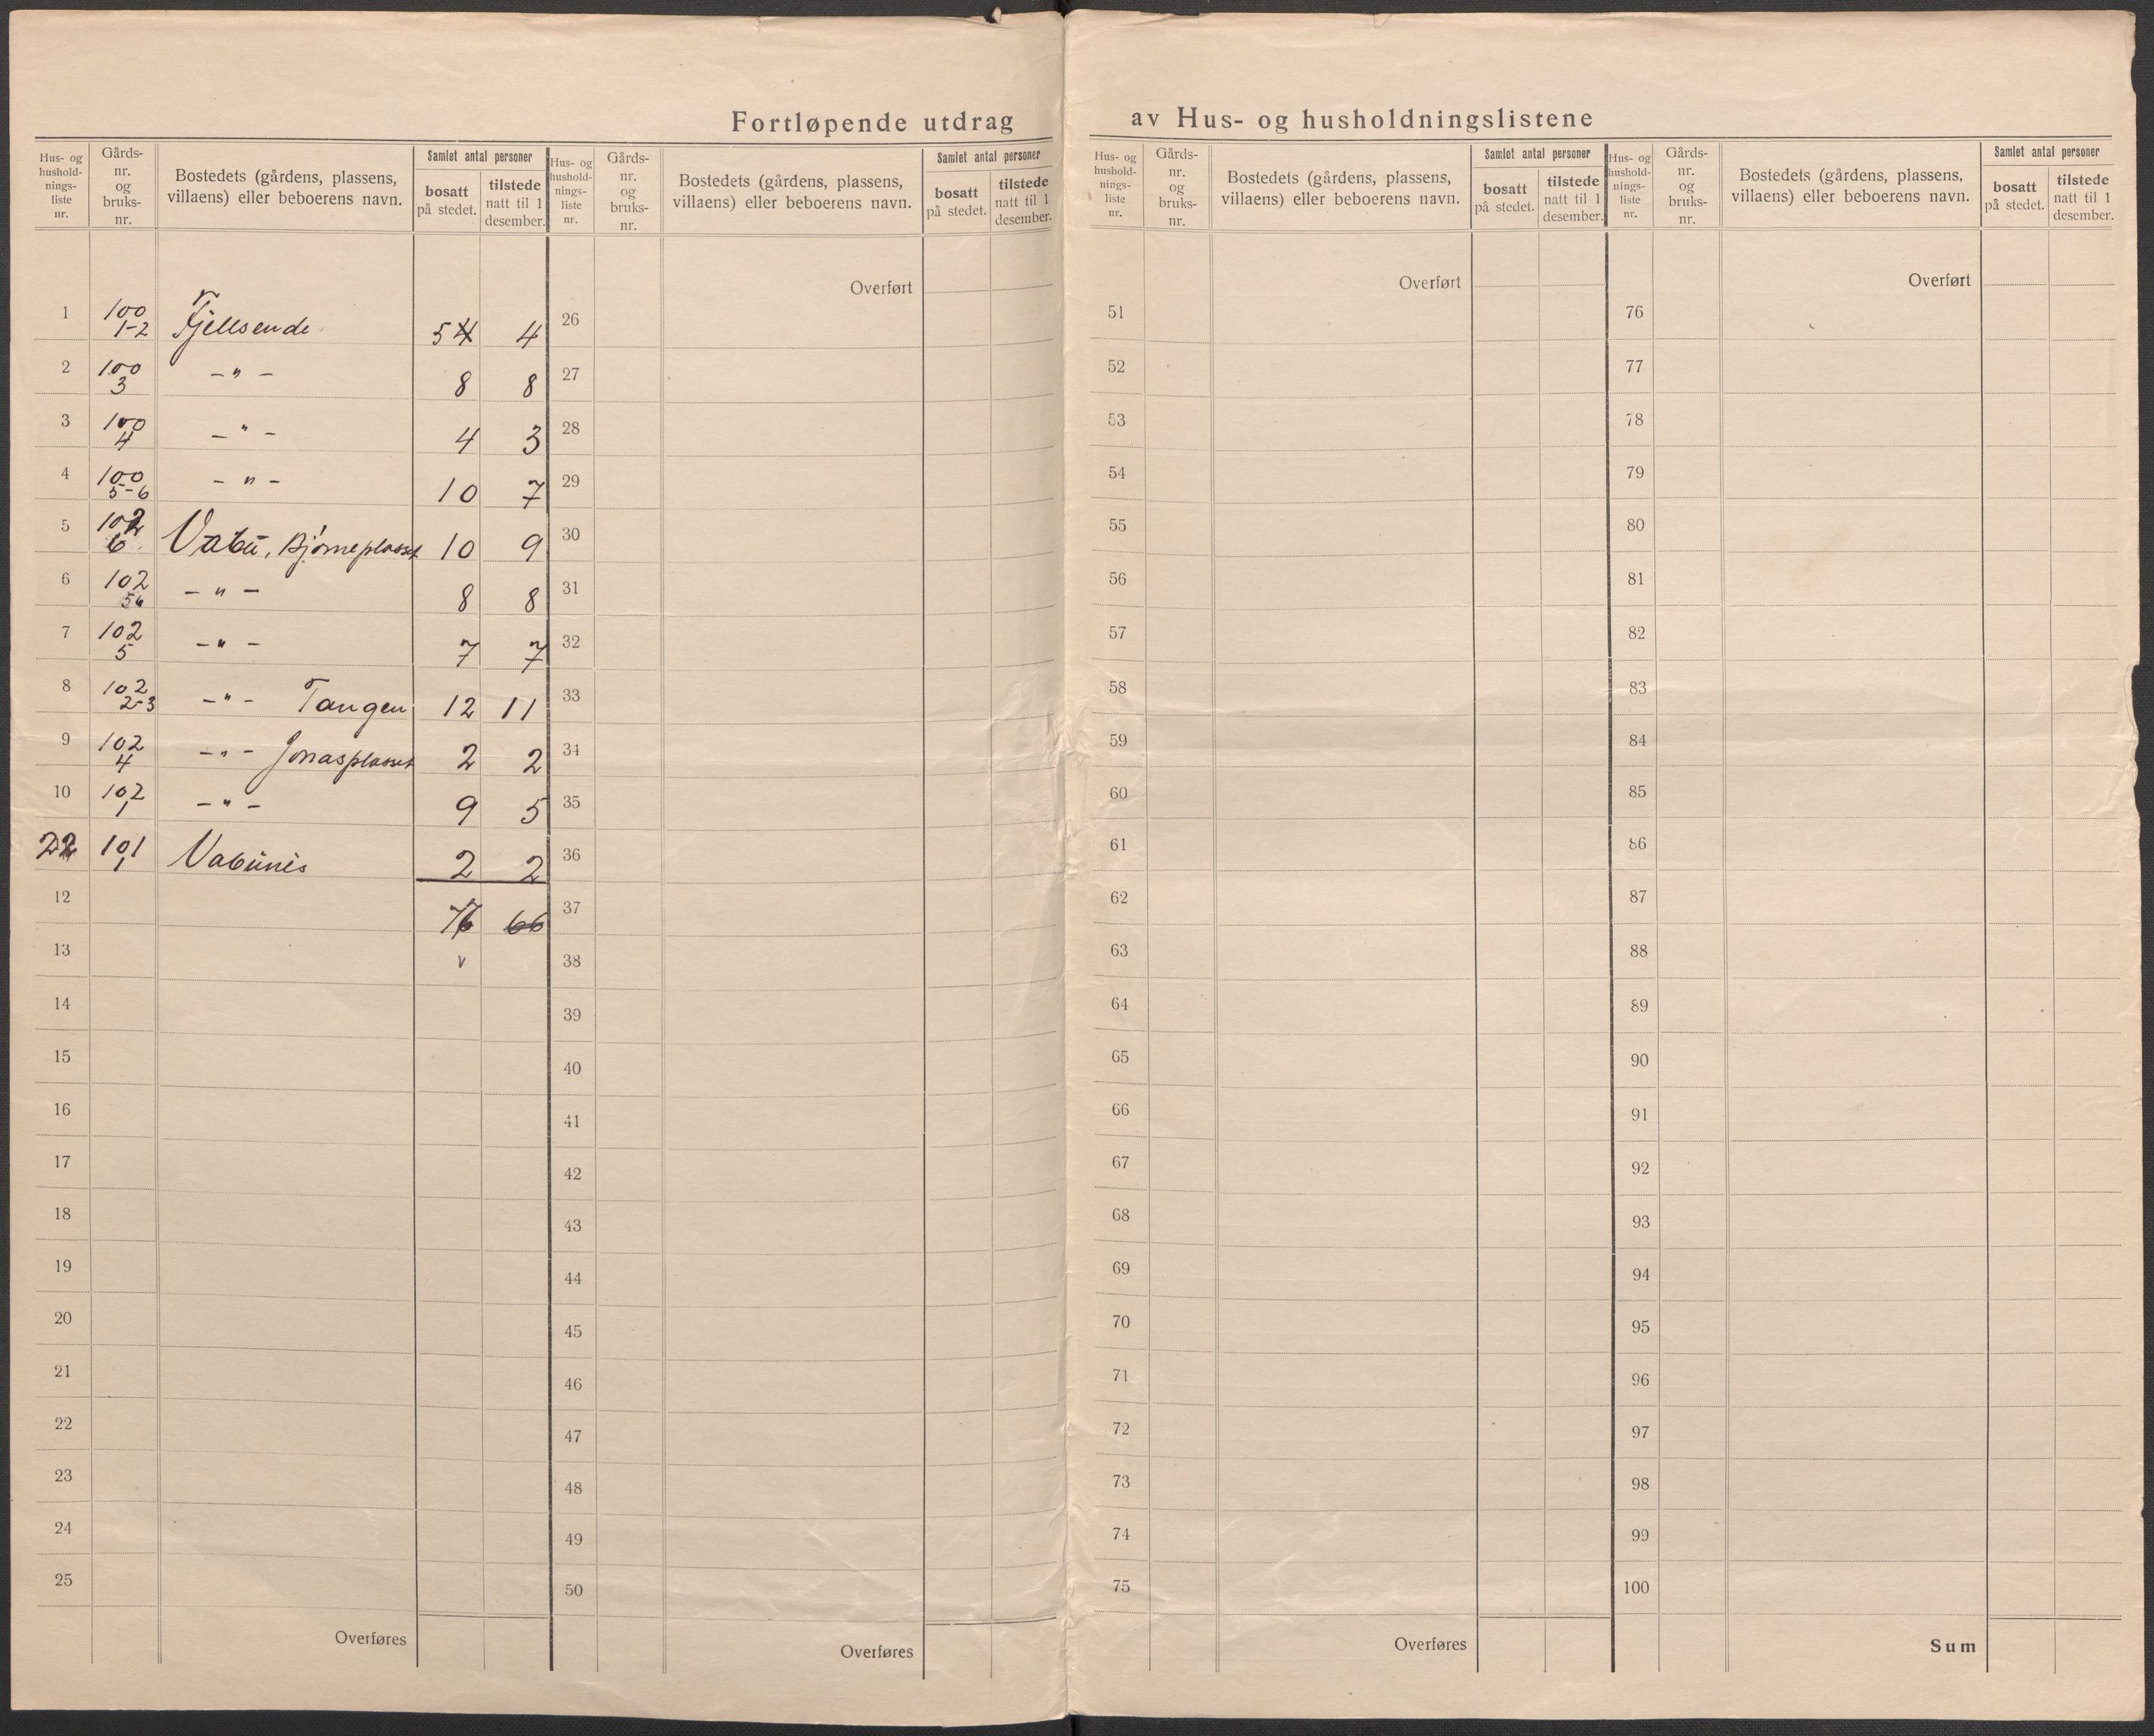 Fortløpende utdrag av Hus- og husholdningslistene
Hus- og husholdnings-liste nr. Gårds-nr. og bruks-nr. Bostedets (gårdens, plassens, villaens) eller beboerens navn. Samlet antal personer bosatt på stedet. tilstede natt til 1 desember.
1 100 1-2 Fjellsende 5 4 4
2 100 3 -"- 8 8
3 100 4 -"- 4 3
4 100 5-6 -"- 10 7
5 102 6 Vabu, Bjørneplasset 10 9
6 102 -"- 8 8
7 102 5 -"- 7 7
8 102 2-3 -"- Tangen 12 11
9 102 4 -"- Jonasplasset 2 2
10 102 1 -"- 9 5
22 101 1 2 2
12 66
13 v
14
15
16
17
18
19
20
21
22
23
24
25
Overføres
Hus- og husholdnings-liste nr. Gårds-nr. og bruks-nr. Bostedets (gårdens, plassens, villaens) eller beboerens navn. Samlet antal personer bosatt på stedet. tilstede natt til 1 desember.
Overført
26
27
28
29
30
31
32
33
34
35
36
37
38
39
40
41
42
43
44
45
46
47
48
49
50
Overføres
Hus- og hushold-nings-liste nr. Gårds-nr. og bruks-nr. Bostedets (gårdens, plassens, villaens) eller beboerens navn. Samlet antal personer bosatt på stedet. tilstede natt til 1 desember.
Overført
51
52
53
54
55
56
57
58
59
60
61
62
63
64
65
66
67
68
69
70
71
72
73
74
75
Overføres
Hus- og hushold-nings-liste nr. Gårds-nr. og bruks-nr. Bostedets (gårdens, plassens, villaens) eller beboerens navn. Samlet antal personer bosatt på stedet. tilstede natt til 1 desember.
Overført
76
77
78
79
80
81
82
83
84
85
86
87
88
89
90
91
92
93
94
95
96
97
98
99
100
Sum